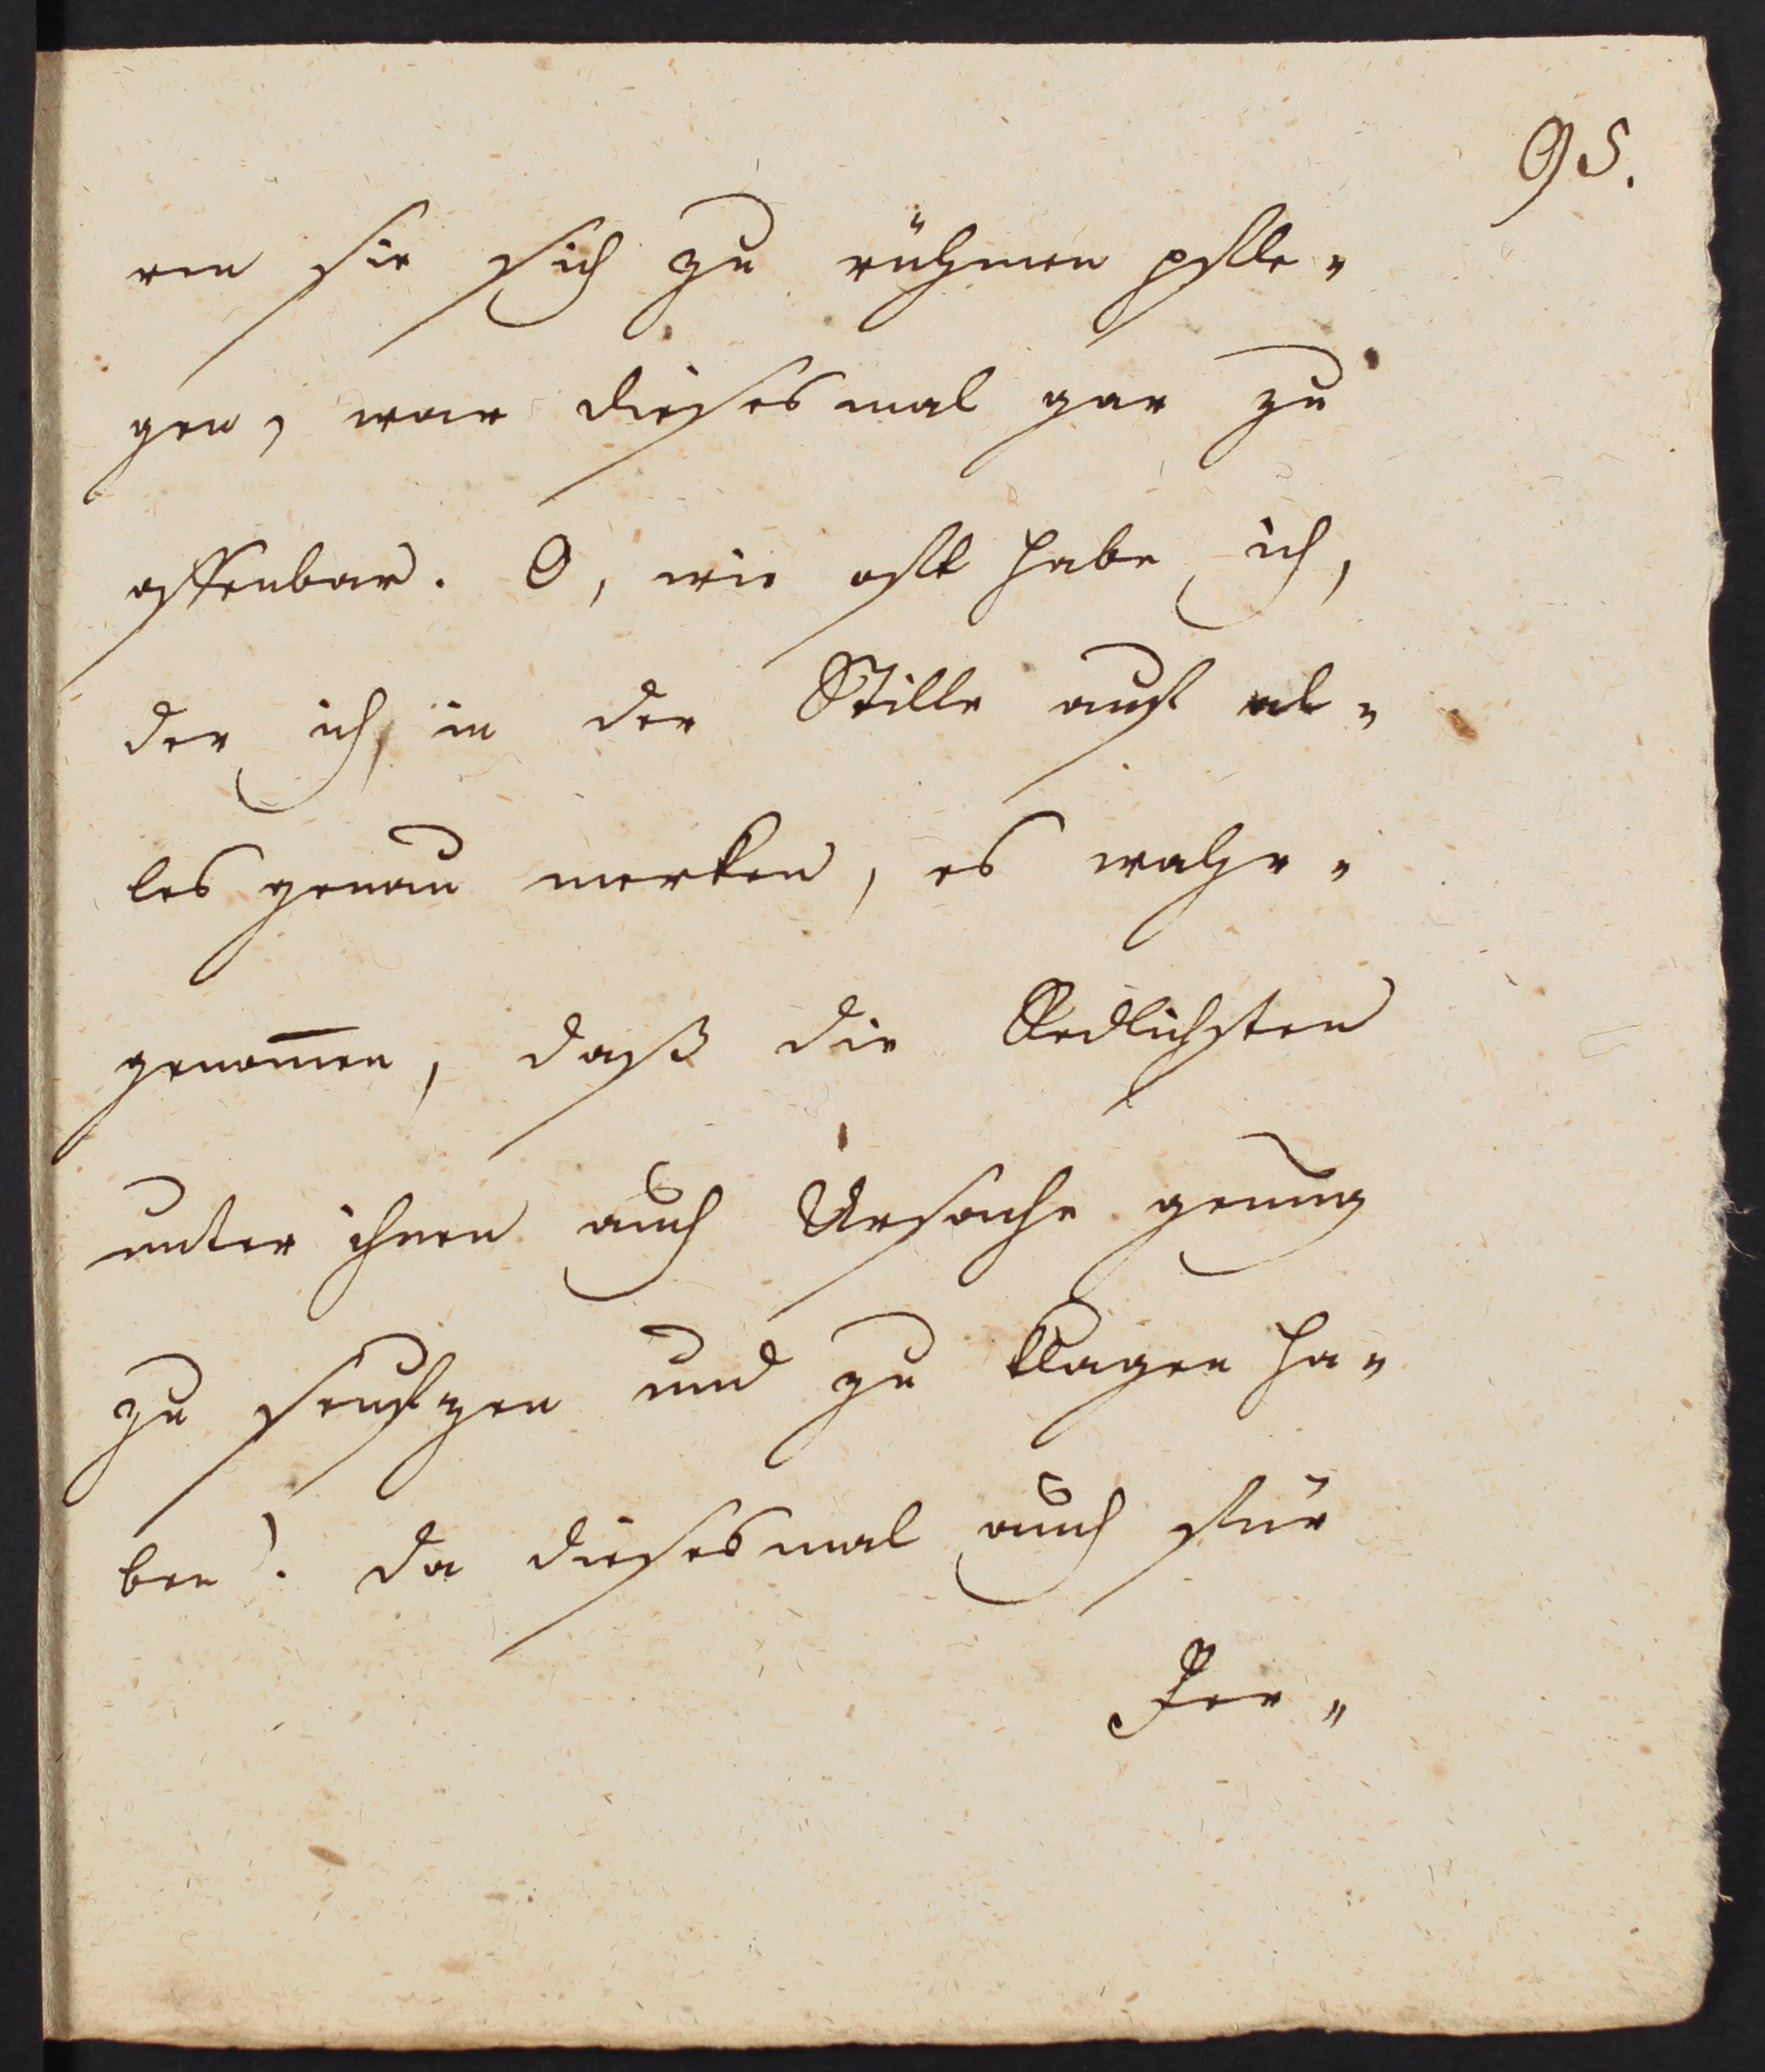 95.
ren sie sich zu rühmen pfle-
gen, war diesesmal gar zu
offenbar. O, wie oft habe ich,
der ich, in der Stille auf al-
les genau merken, es wahr-
genom̄en, daß die Redlichsten
unter ihnen auch Ursache genung
zu seufzen und zu klagen ha-
ben!. da diesesmal auch für
Fer-